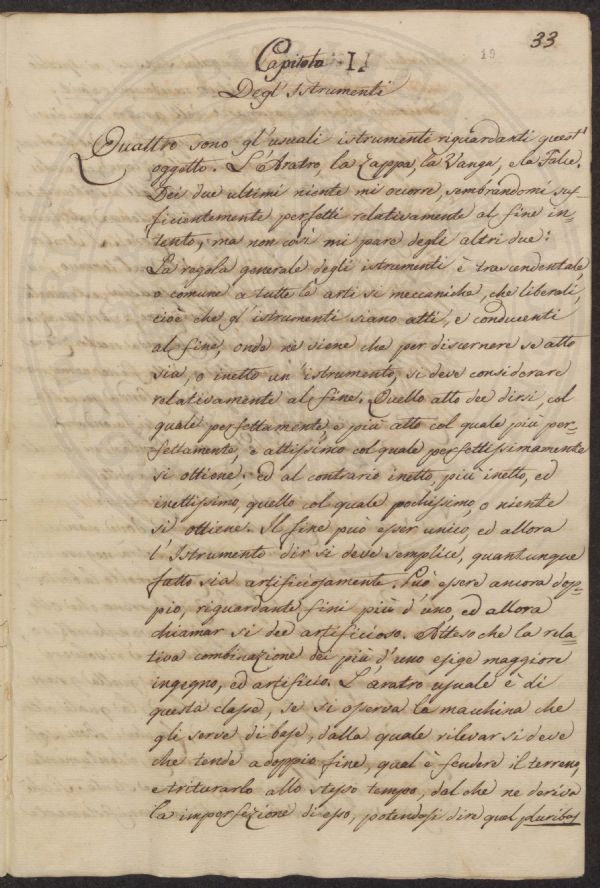 33
19
Capitolo II
Degl'Istrumenti
Quattro sono gl'usuali istrumenti riguardanti quest'
oggetto. L'Aratro, la Zappa, la Vanga, e la Falce.
Dei due ultimi niente mi ocorre, sembrandomi suf-
ficientemente perfetti relativamente al fine in-
tento, ma non così mi pare degli altri due:
La regola generale degli istrumenti è trascendentale,
o comune a tutte le arti si meccaniche, che liberali,
cioè che gl'istrumenti siano atti, e conducenti
al fine, onde ne viene che per discernere se atto
sia, o inetto un'istrumento, si deve considerare
relativamente al fine. Quello atto dee dirsi, col
quale perfettamente, e più atto col quale più per-
fettamente, e attissimo col quale perfettissimamente
si ottiene. ed al contrario inetto, più inetto, ed
inettissimo, quello col quale pochissimo, o niente
si ottiene. Il fine può esser unico, ed allora
l'Istrumento dir si deve semplice, quantunque
fatto sia artificiosamente. Può essere ancora dop-
pio, riguardante fini più d'uno, ed allora
chiamar si dee artificioso. Atteso che la rela-
tiva combinazione dei più d'uno esige maggiore
ingegno, ed artificio. L'aratro usuale è di
questa classe, se si osserva la macchina che
gli serve di base, dalla quale rilevar si deve
che tende a doppio fine, qual è fendere il terreno,
e triturarlo allo stesso tempo, dal che ne deriva
la imperfezione di esso, potendosi dire quel pluribus